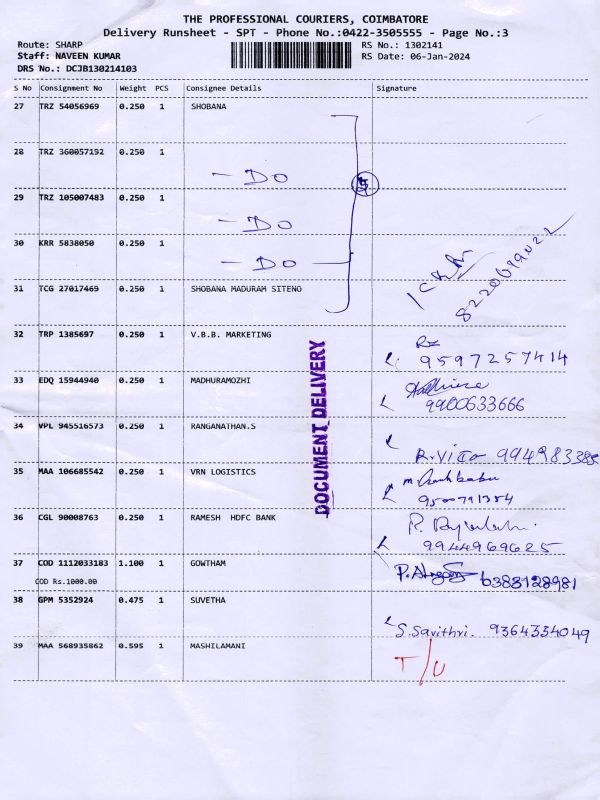 THE PROFESSIONAL COURIERS, COIMBATORE
Delivery Runsheet - SPT - Phone No.:0422-3505555 - Page No.:3
Route: SHARP
Staff: NAVEEN KUMAR
DRS No.: DCJB130214103
RS No.: 1302141
RS Date: 06-Jan-2024
S No Consignment No Weight PCS Consignee Details Signature
27 TRZ 54056969 0.250 1 SHOBANA
28 TRZ 360057192 0.250 1
- DO
29 TRZ 105007483 0.250 1
- DO
30 KRR 5838050 0.250 1
- DO
31 TCG 27017469 0.250 1 SHOBANA MADURAM SITENO
32 TRP 1385697 0.250 1 V.B.B. MARKETING
9597257414
33 EDQ 15944940 0.250 1 MADHURAMOZHI
9900633666
34 VPL 945516573 0.250 1 RANGANATHAN.S
35 MAA 106685542 0.250 1 VRN LOGISTICS
36 CGL 90008763 0.250 1 RAMESH HDFC BANK
9944969625
37 COD 1112033183 1.100 1 GOWTHAM
COD Rs.1000.00
6383128981
38 GPM 5352924 0.475 1 SUVETHA
S. Savithri. 9364334049
39 MAA 568935862 0.595 1 MASHILAMANI
T/U
DOCUMENT DELIVERY